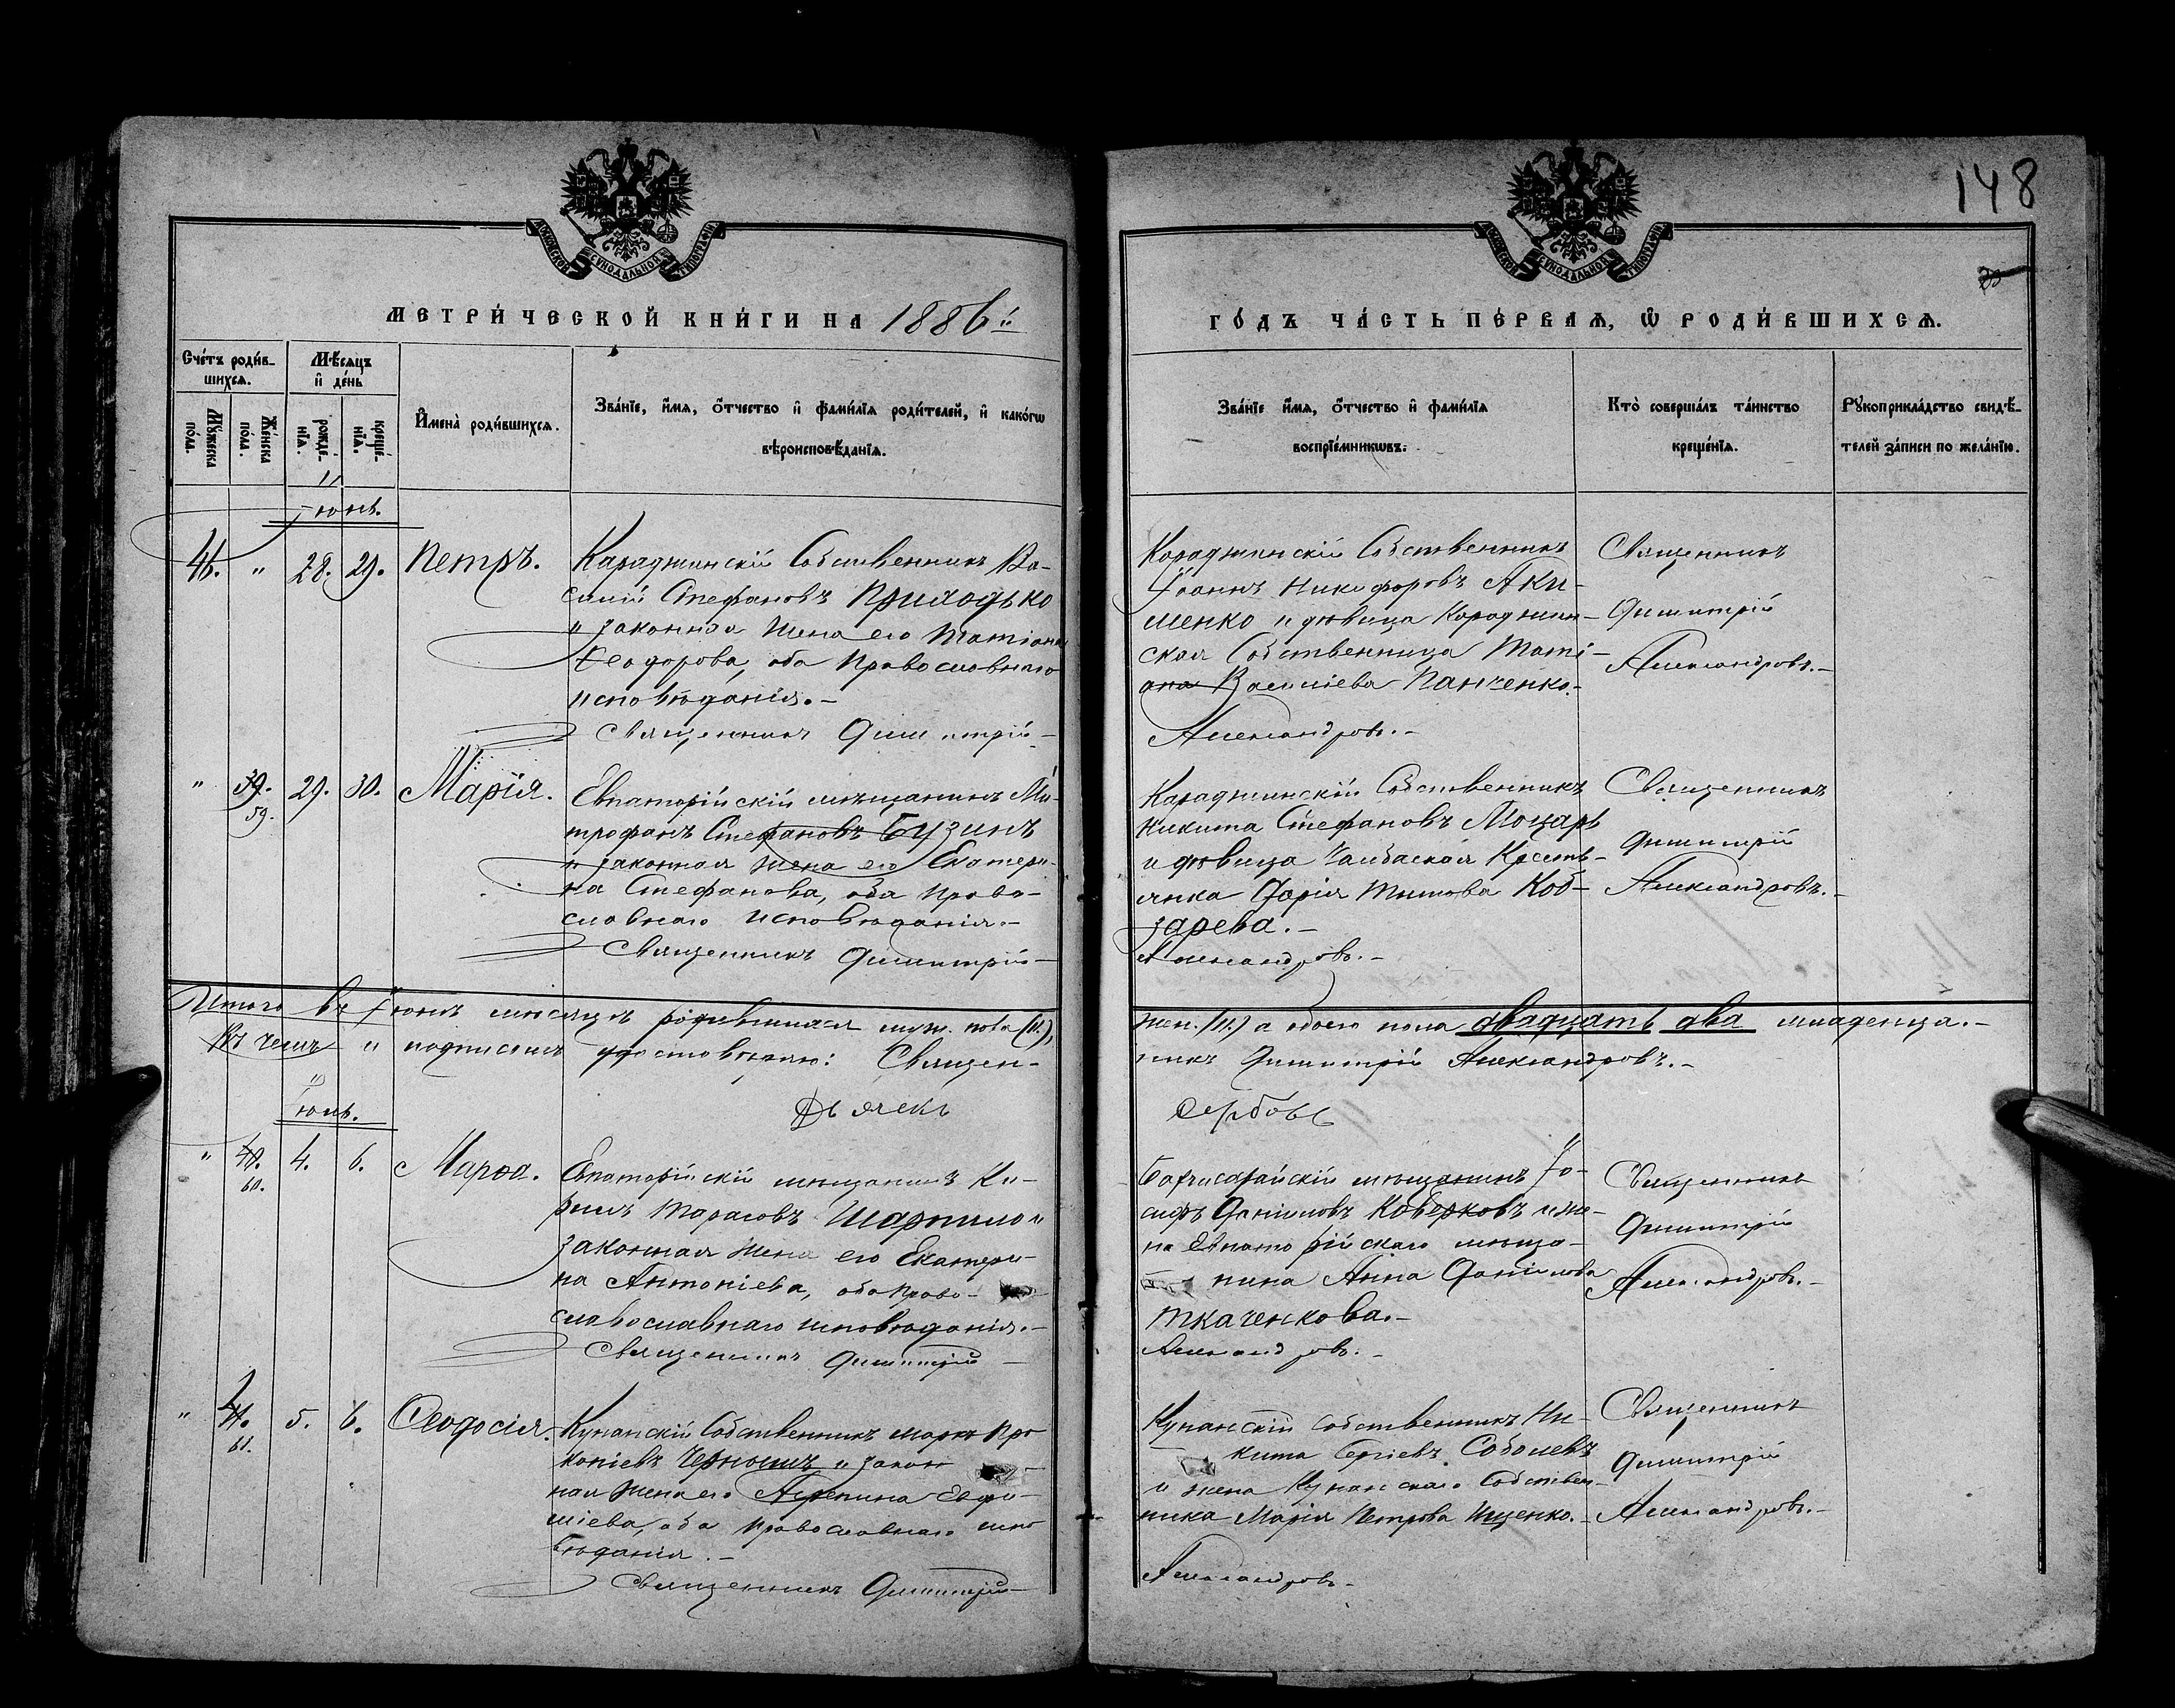 148
МОСКОВСКОЙ СѴНОДАЛЬНОЙ ТИПОГРАФІИ
МОСКОВСКОЙ СѴНОДАЛЬНОЙ ТИПОГРАФІИ
МЕТРИ́ЧЕСКОЙ КНИ́ГИ НА 1886й
ГО́ДЪ ЧА́СТЬ ПЕ́РВАѦ, Ѽ РОДИ́ВШИХСѦ.
Сче́тъ роди́в-
шихсѧ.
Мѣ́сѧцъ
и҆ де́нь
Мꙋ́жеска
по́ла.
Же́нска
по́ла.
рожде́-
нїѧ.
креще́-
нїѧ.
И҆мена̀ роди́вшихсѧ.
Зва́нїе, и҆́мѧ, ѻ҆́тчество и҆ фами́лїѧ роди́телей, и҆ како́гѡ
вѣроисповѣ́данїѧ.
Зва́нїе и҆́мѧ, ѻ҆́тчество и҆ фами́лїѧ
воспрїе́мникѡвъ.
Кто̀ соверша́лъ та́инство
креще́нїѧ.
Рꙋкоприкла́дство свидѣ́-
телей за́писи по жела́нїю.
Іюнь.
" 28. 29. Петръ.
Караджинскій Собственникъ Ва-
силій Стефановъ Приходько
и законная жена его Татіана
Ѳеодорова, оба Православнаго
исповѣданія. –
Священникъ Димитрій –
Караджинскій Собственникъ
Іоаннъ Никифоровъ Аки-
менко и дѣвица Караджин-
ская Собственница Таті-
ана Василіева Панченко. –
Александровъ. –
Священникъ
Димитрій
Александровъ. –
" 39. 59. 29. 30. Марія.
Евпаторійскій мѣщанинъ Ми-
трофанъ Стефановъ Бузинъ
и законная жена его Екатери-
на Стефанова, оба Право-
славнаго исповѣданія. –
Священникъ Димитрій –
Караджинскій Собственникъ
Никита Стефановъ Моцарь
и дѣвица Кресть-
янка Дарія Титова Коб-
зарева. –
Александровъ. –
Священникъ
Димитрій
Александровъ. –
Итого въ Іюнѣ мѣсяцѣ родившихся муж. пола (11.),
жен. (11.) а обоего пола двадцать два младенца. –
Въ чемъ и подписомъ удостовѣряю: Священ-
никъ Димитрій Александровъ. –
Дьячекъ
Сербовъ
Іюль.
" 40. 60. 4. 6. Марѳа.
Евпаторійскій мѣщанинъ Ки-
риллъ Тарасовъ Шарпило и
законная жена его Екатери-
на Антоніева, оба Право-
славославнаго исповѣданія. –
Священникъ Димитрій –
Бахчисарайскій мѣщанинъ Іо-
сифъ Даніиловъ Коверковъ и же-
на Евпаторійскаго мѣща-
нина Анна Даніилова
Ткаченкова. –
Александровъ. –
Священникъ
Димитрій
Александровъ. –
" 41. 61. 5. 6. Ѳеодосія.
Кунанскій Собственникъ Маркъ Про
копіевъ и закон
ная жена его Агрепина Евфи-
міева, оба Православнаго испо
вѣданія. –
Священникъ Димитрій –
Кунанскій Собственникъ Ни-
кита Сергіевъ Соболевъ
и жена Кунанскаго Собствен-
ника Марія Петрова Ищенко. –
Александровъ. –
Священникъ
Димитрій
Александровъ. –